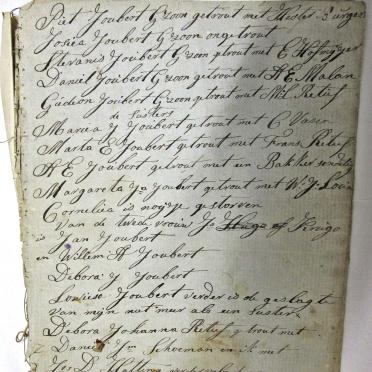 Piet Joubert G zoon getrout met Hester Burger
Josua Joubert G zoon ongetrout
Stevanis Joubert G zoon getrout met E Hofmyger
Daniel Joubert G zoon getrout met A E Malan
Gideon Joubert G zoon getrout met ML Retief
de Susters
Marea y Joubert getrout met C Vasen
Marta E Joubert getrout met Frans Retief
A E Joubert getrout met een Bakker
Margareta Jo Joubert getrout met W. J. Louw
Cornelia is nooijt gestorven
van de twede vrouw Jo Hugo of
is Jan Joubert
en Willem A Joubert
Debora y Joubert
Louiese Joubert verder is de geslagte
van mijn niet meer als een suster
Debora Johanna Retief g trout met
Daniel Schoeman in it met
Jos D.